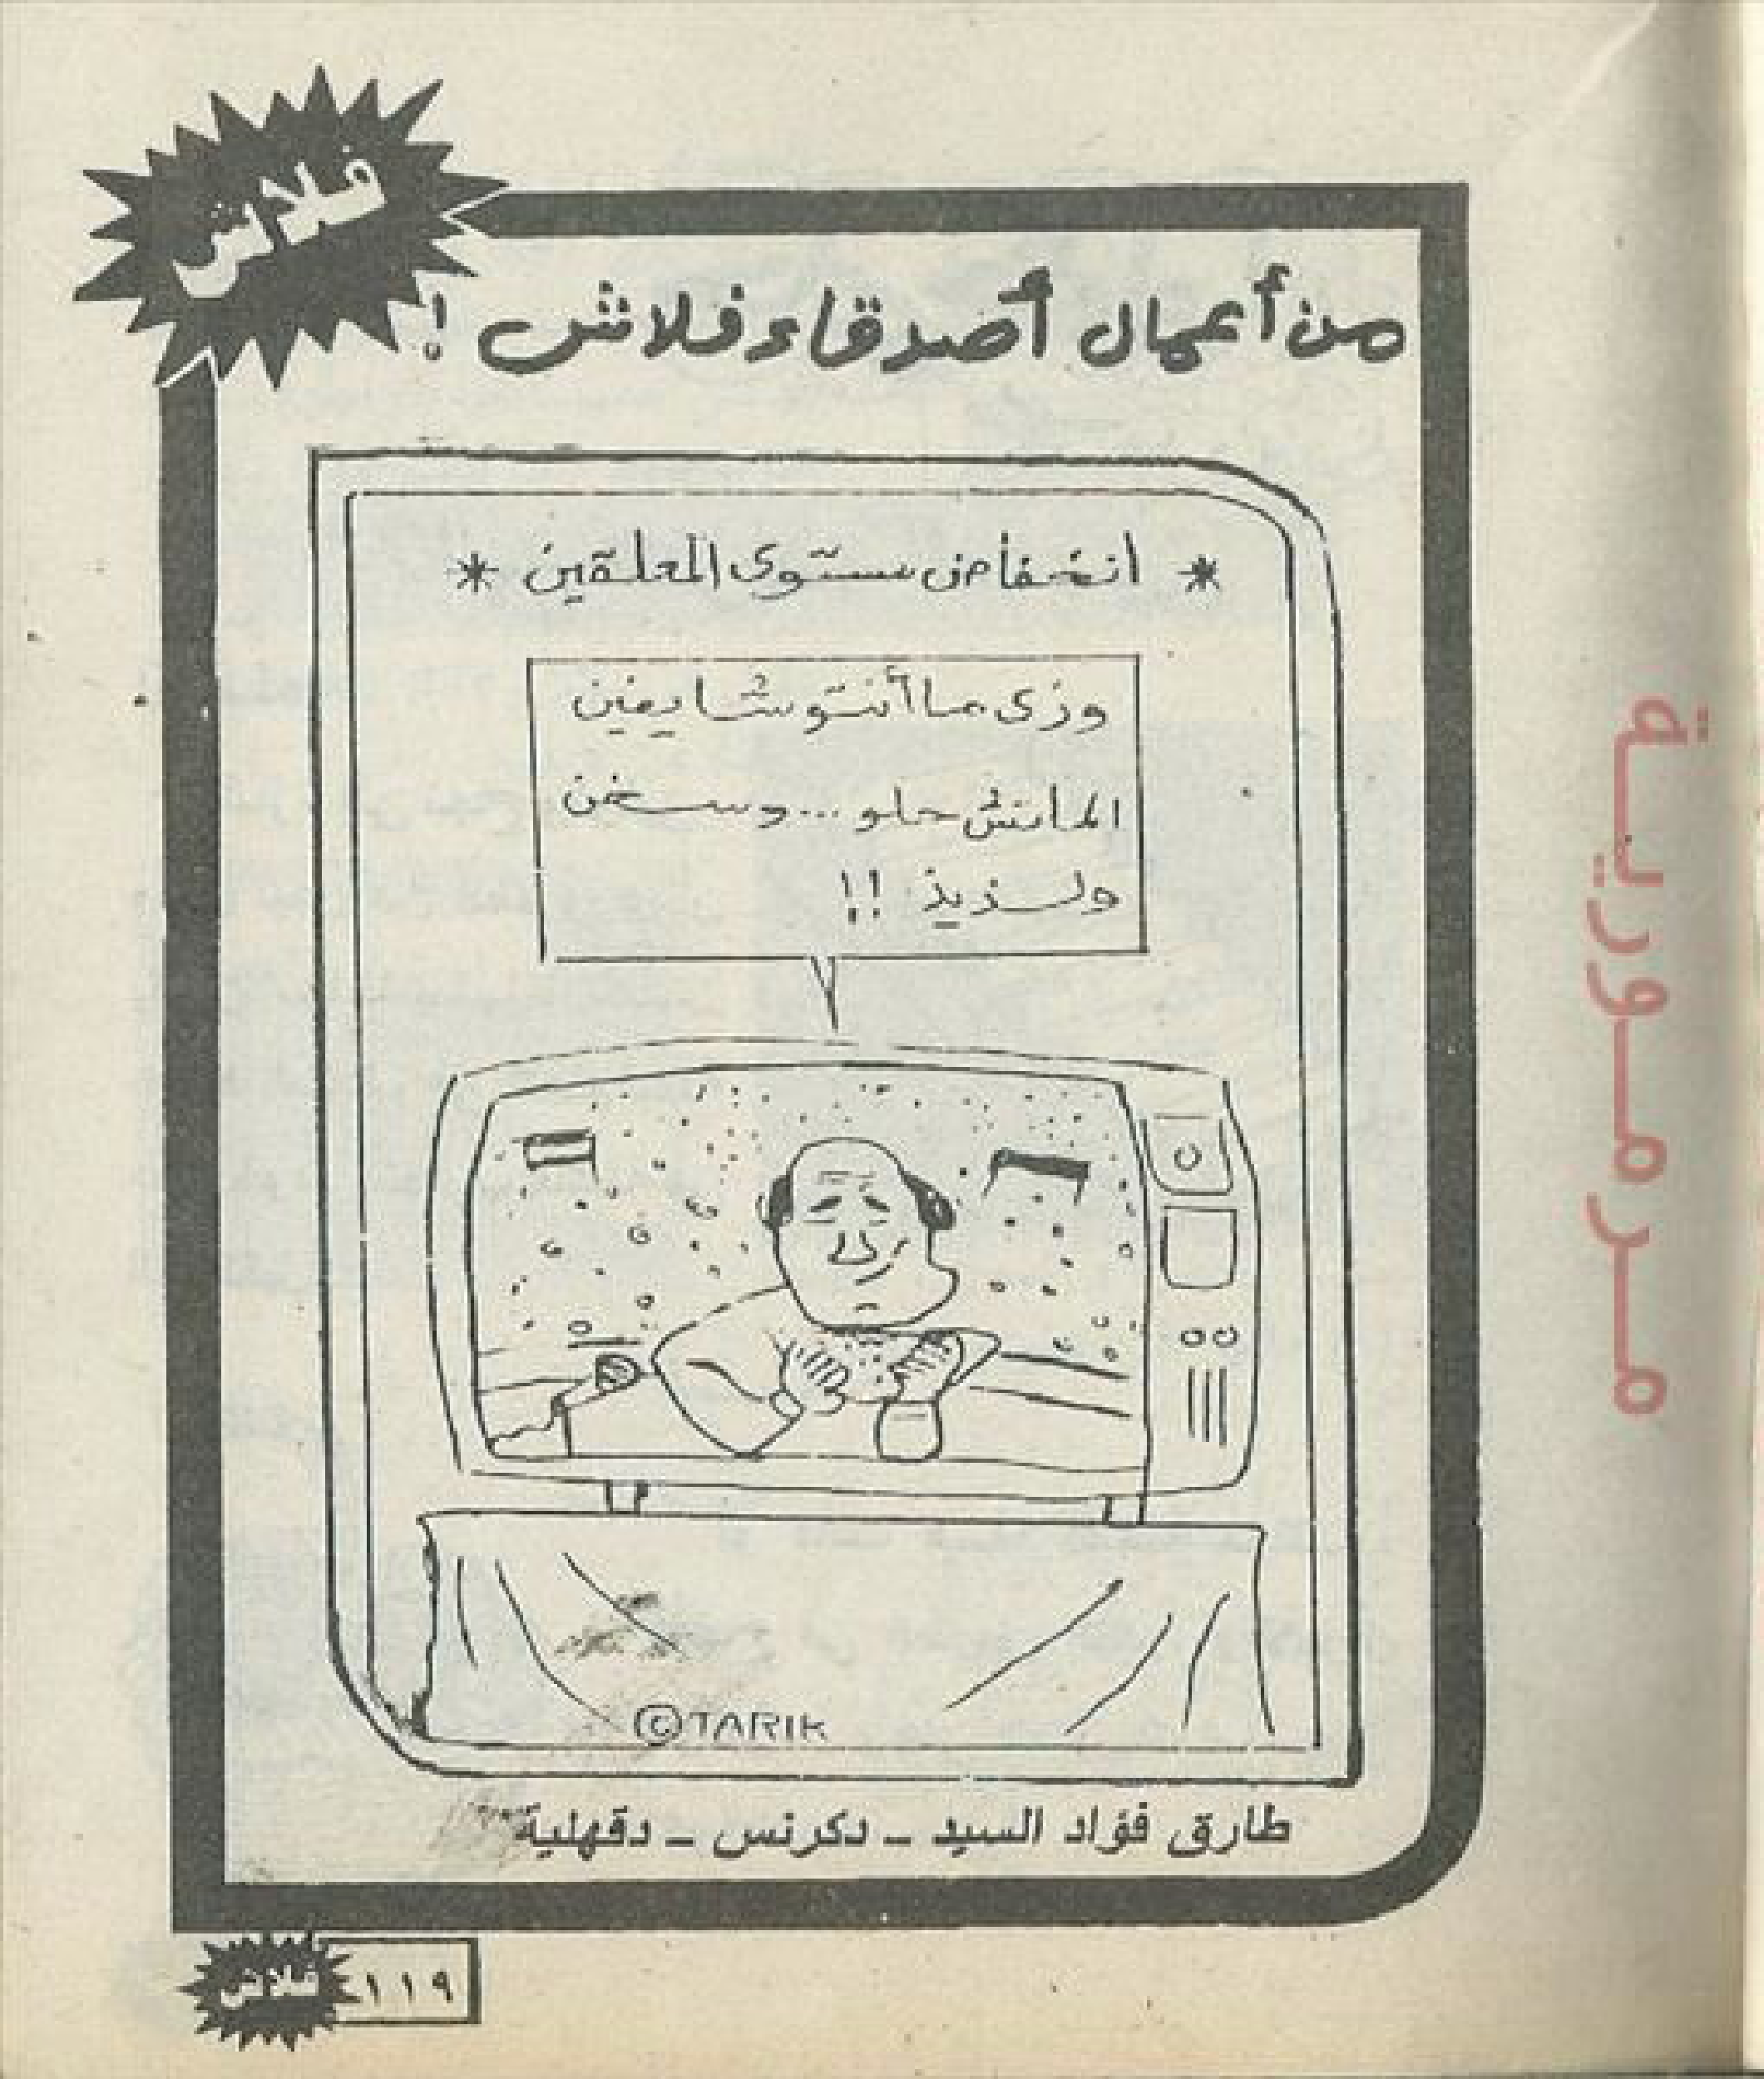 فلاش
من أعمال أصدقاء فلاش !
* انخفاض مستوى المعلقين *
وزى ما أنتو شايفين
الماتش حلو ... وسخن
ولذيذ !!
©TARIK
طارق فؤاد السيد ـ دكرنس ـ دقهلية
فلاش ١١٩
مرمورية